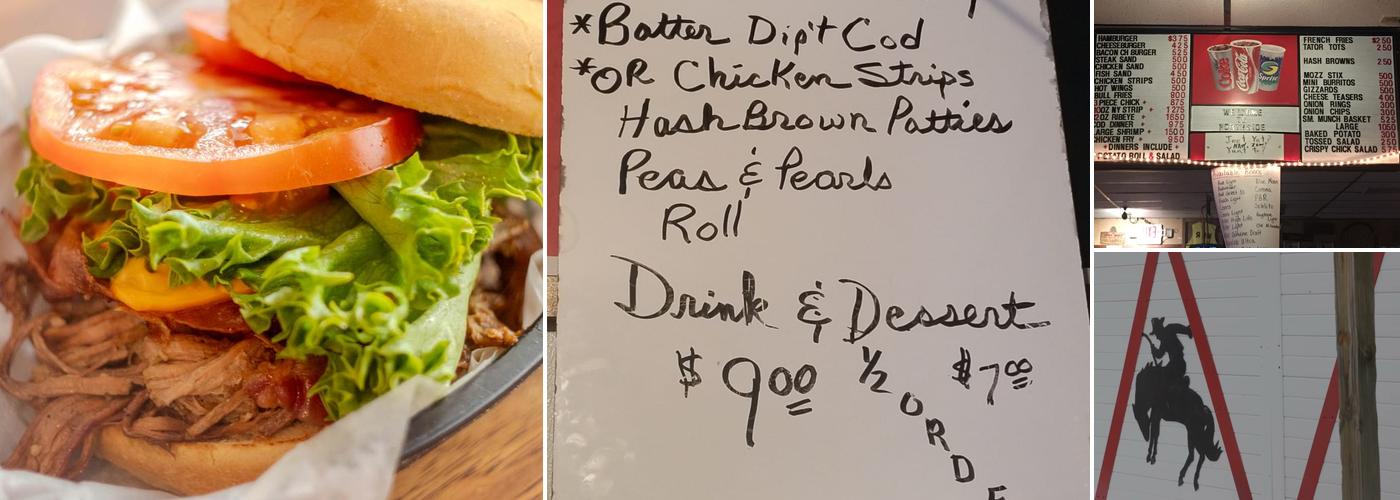 *Batter Dip't Cod
*OR Chicken Strips
Hash Brown Patties
Peas & Pearls
Roll
Drink & Dessert
$9.00 1/2 ORDE $7.00
HAMBURGER $375
CHEESEBURGER 425
BACON CH BURGER 525
STEAK SAND 500
CHICKEN SAND 500
FISH SAND 450
CHICKEN STRIPS 500
HOT WINGS 500
BULL FRIES 800
3 PIECE CHICK + 875
10OZ NY STRIP + 1275
12OZ RIBEYE + 1650
COD DINNER + 975
LARGE SHRIMP + 1500
CHICKEN FRY + 950
+DINNERS INCLUDE+
POTATO ROLL & SALAD
Coke
Coca-Cola
Sprite
FRENCH FRIES $250
TATOR TOTS 250
HASH BROWNS 250
MOZZ STIX 500
MINI BURRITOS 500
GIZZARDS 500
CHEESE TEASERS 400
ONION RINGS 300
ONION CHIPS 300
SM. MUNCH BASKET 525
LARGE 1000
BAKED POTATO 300
TOSSED SALAD 250
CRISPY CHICK SALAD
Corona
PBR
Schlitz